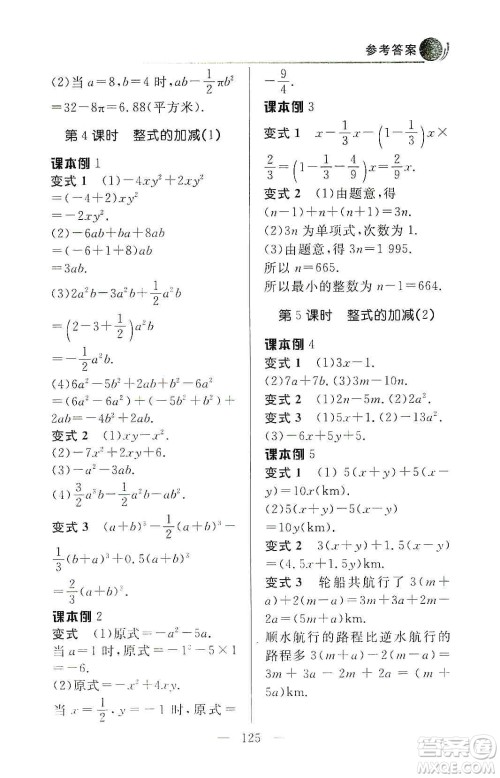 参考答案
(2)当a=8,b=4时,ab-1/2πb²
=32-8π=6.88(平方米).
第4课时 整式的加减(1)
课本例1
变式1 (1)-4xy²+2xy²
=(-4+2)xy²
=-2xy².
(2)-6ab+ba+8ab
=(-6+1+8)ab
=3ab.
(3)2a²b-3a²b+1/2a²b
=(2-3+1/2)a²b
=-1/2a²b.
(4)6a²-6b²-6a²+6b²
=(6a²-6a²)+(-6b²+6b²)=0.
变式2 (1)xy-x².
(2)-7x²+2x+2.
(3)-a²b-2ab.
(4)3/2a²b-5/2ab².
变式3 (a+b)³-1/2(a+b)³-
1/3(a+b)³+0.5(a+b)³
=2/3(a+b)³.
课本例2
变式 (1)原式=-a²-5a.
当a=1时,原式=-1²-5×1
=-6.
(2)原式=-x²+x-2.
当x=1/2时,原式=-x²+x-2=
-9/4.
课本例3
变式1 x-1/3x-(1-1/3)x×
2/3=(1-1/3-4/9)x=2/9x.
变式2 (1)由题意,得
(n-1)+n+(n+1)=3n.
(2)3n为单项式,次数为1.
(3)由题意,得3n=1 995.
所以n=665.
所以最小的整数为n-1=664.
第5课时 整式的加减(2)
课本例4
变式1 (1)3x-1.
(2)7a+7b.(3)-10b.
变式2 (1)2n-5m.(2)2a².
变式3 (1)5x+1.
(2)3a²-6a-5.
课本例5
变式1 (1)5(x+y)+5(x-y)
=10x(km).
(2)5(x+y)-5(x-y)
=10y(km).
变式2 3(x+y)+1.5(x-y)
=(4.5x+1.5y)km.
变式3 轮船共航行了3(m+
a)+2(m-a)=3m+3a+2m-
2a=(5m+a)km.
顺水航行的路程比逆水航行的
路程多3(m+a)-2(m-a)=
3m+3a-2m+2a=(m+
5a)km.
125